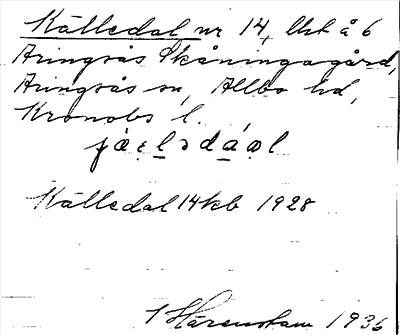 Källedal nr 14, lht å 6
Aringsås Skåningagård,
Aringsås sn, Allbo hd,
Kronobs l.
Källedal 14 kb 1928
Härenstam 1936